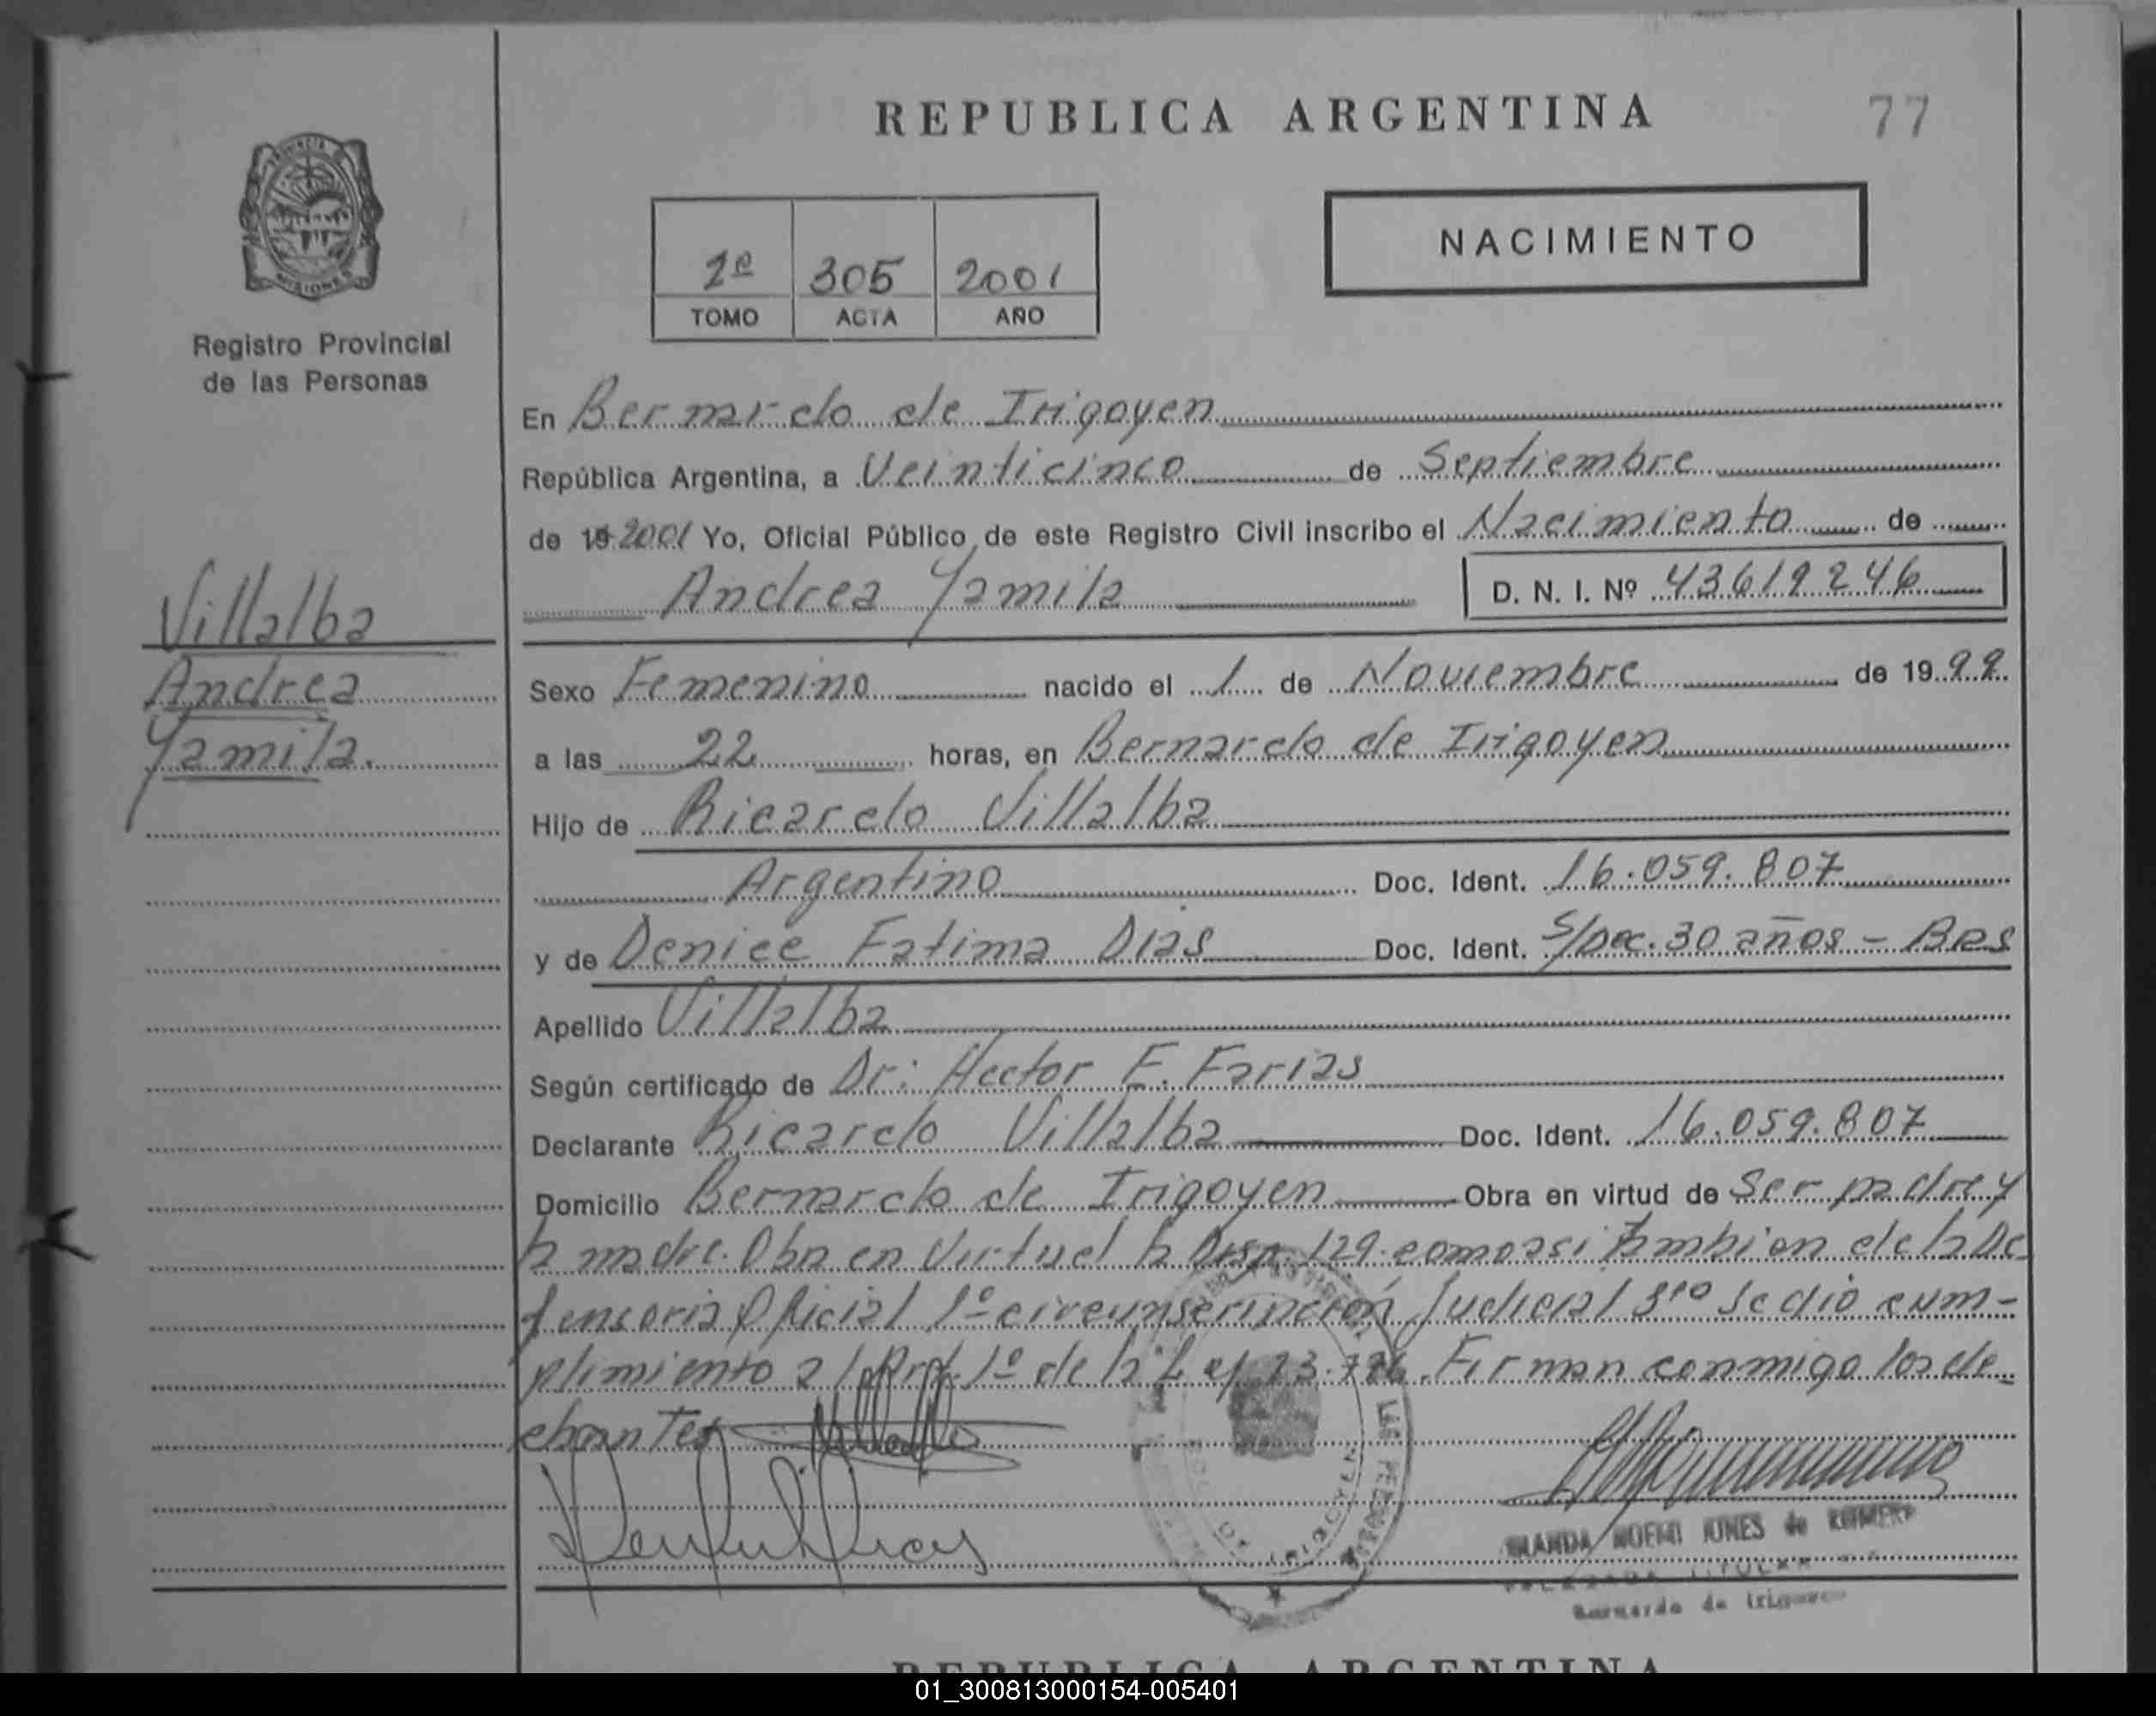 REPUBLICA ARGENTINA
77
NACIMIENTO
305 2001
TOMO ACTA AÑO
PROVINCIA DE
MISIONES
Registro Provincial
de las Personas
Villalba
Andrea
Yamila.
En Bernardo de Irigoyen
República Argentina, a Veinticinco de Septiembre
de 19 2001 Yo, Oficial Público de este Registro Civil inscribo el Nacimiento de
Andrea Yamila D. N. I. Nº 43619246
Sexo Femenino nacido el 1 de Noviembre de 1999.
a las 22 horas, en Bernardo de Irigoyen
Hijo de Ricardo Villalba
Argentino Doc. Ident. 16.059.807
y de Denice Fatima Dias Doc. Ident. S/Doc. 30 años - Bras
Apellido Villalba
Según certificado de Dr: Hector E. Farias
Declarante Ricardo Villalba Doc. Ident. 16.059.807
Domicilio Bernardo de Irigoyen Obra en virtud de Ser padre y
la madre. Obra en Virtud la Disp. 129. como asi tambien de la De
fensoria Oficial 1º circunscripcion Judicial 3ro Se dió cum-
plimiento al Art. 1º de la Ley 23.776. Firman conmigo los de-
clarantes
NOEMI de ROMERO
DELEGADA TITULAR
Bernardo de Irigoyen
DE IRIGOYEN
REPUBLICA ARGENTINA
01_300813000154-005401